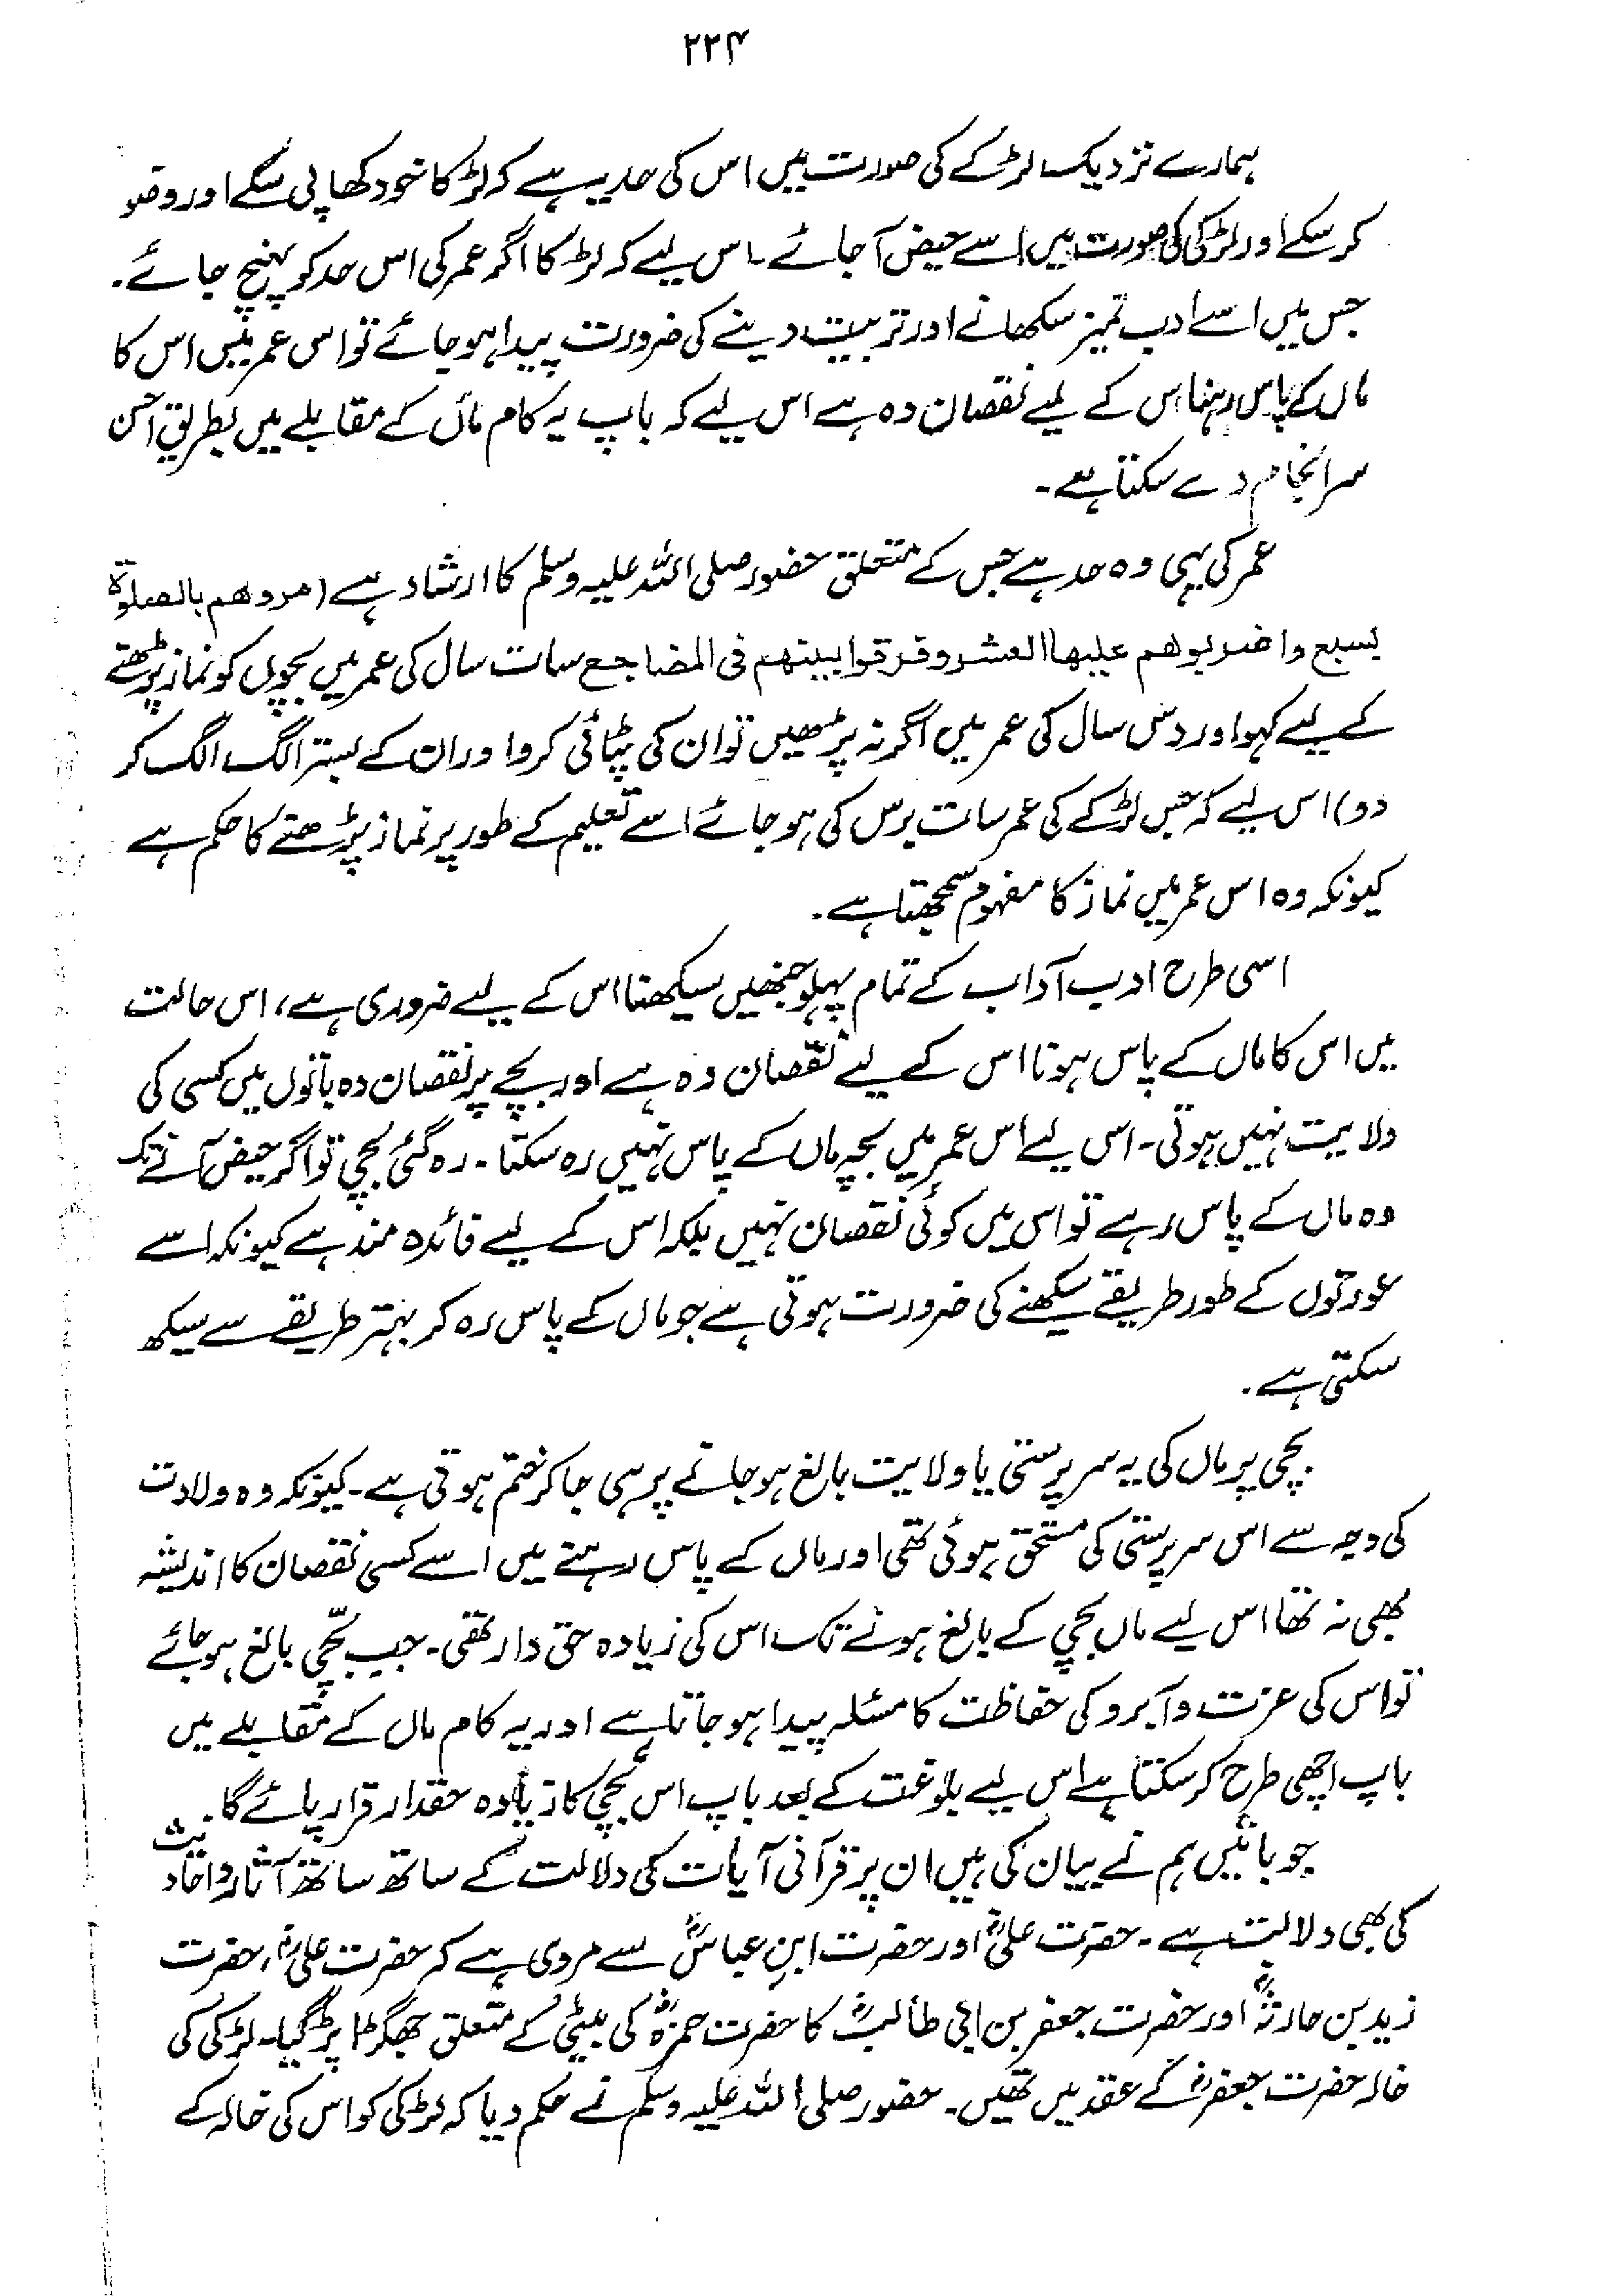 ۲۲۴
ہمارے نزدیک لڑکے کی صورت میں اس کی حد یہ ہے کہ لڑکا خود کھا پی سکے اور وضو
کر سکے اور لڑکی کی صورت میں اسے حیض آ جائے۔ اس لیے کہ لڑکا اگر عمر کی اس حد کو پہنچ جائے۔
جس میں اسے ادب تمیز سکھانے اور تربیت دینے کی ضرورت پیدا ہو جائے تو اس عمر میں اس کا
ماں کے پاس رہنا اس کے لیے نقصان دہ ہے اس لیے کہ باپ یہ کام ماں کے مقابلے میں بطریق احسن
سرانجام دے سکتا ہے۔
عمر کی یہی وہ حد ہے جس کے متعلق حضور صلی اللہ علیہ وسلم کا ارشاد ہے (مروھم بالصلوٰۃ
لسبع واضربوھم علیھا العشر وفرقوا بینھم فی المضاجع سات سال کی عمر میں بچوں کو نماز پڑھنے
کے لیے کہو اور دس سال کی عمر میں اگر نہ پڑھیں تو ان کی پٹائی کرو اور ان کے بستر الگ الگ کر
دو) اس لیے کہ جس لڑکے کی عمر سات برس کی ہو جائے اسے تعلیم کے طور پر نماز پڑھنے کا حکم ہے
کیونکہ وہ اس عمر میں نماز کا مفہوم سمجھتا ہے۔
اسی طرح ادب آداب کے تمام پہلو جنھیں سیکھنا اس کے لیے ضروری ہے، اس حالت
میں اس کا ماں کے پاس ہونا اس کے لیے نقصان دہ ہے اور بچے پر نقصان دہ باتوں میں کسی کی
ولایت نہیں ہوتی۔ اس لیے اس عمر میں بچہ ماں کے پاس نہیں رہ سکتا۔ رہ گئی بچی تو اگر حیض آنے تک
وہ ماں کے پاس رہے تو اس میں کوئی نقصان نہیں بلکہ اس کے لیے فائدہ مند ہے کیونکہ اسے
عورتوں کے طور طریقے سیکھنے کی ضرورت ہوتی ہے جو ماں کے پاس رہ کر بہتر طریقے سے سیکھ
سکتی ہے۔
بچی پر ماں کی یہ سرپرستی یا ولایت بالغ ہو جانے پر ہی جا کر ختم ہوتی ہے۔ کیونکہ وہ ولادت
کی وجہ سے اس سرپرستی کی مستحق ہوئی تھی اور ماں کے پاس رہنے میں اسے کسی نقصان کا اندیشہ
بھی نہ تھا اس لیے ماں بچی کے بالغ ہونے تک اس کی زیادہ حق دار تھی۔ جب بچّی بالغ ہو جائے
تو اس کی عزت و آبرو کی حفاظت کا مسئلہ پیدا ہو جاتا ہے اور یہ کام ماں کے مقابلے میں
باپ اچھی طرح کر سکتا ہے اس لیے بلوغت کے بعد باپ اس بچی کا زیادہ حقدار قرار پائے گا۔
جو باتیں ہم نے بیان کی ہیں ان پر قرآنی آیات کی دلالت کے ساتھ ساتھ آثار و احادیث
کی بھی دلالت ہے۔ حضرت علیؓ اور حضرت ابنِ عباسؓ سے مروی ہے کہ حضرت علیؓ، حضرت
زید بن حارثہؓ اور حضرت جعفر بن ابی طالبؓ کا حضرت حمزہؓ کی بیٹی کے متعلق جھگڑا پڑ گیا۔ لڑکی کی
خالہ حضرت جعفرؓ کے عقد میں تھیں۔ حضور صلی اللہ علیہ وسلم نے حکم دیا کہ لڑکی کو اس کی خالہ کے